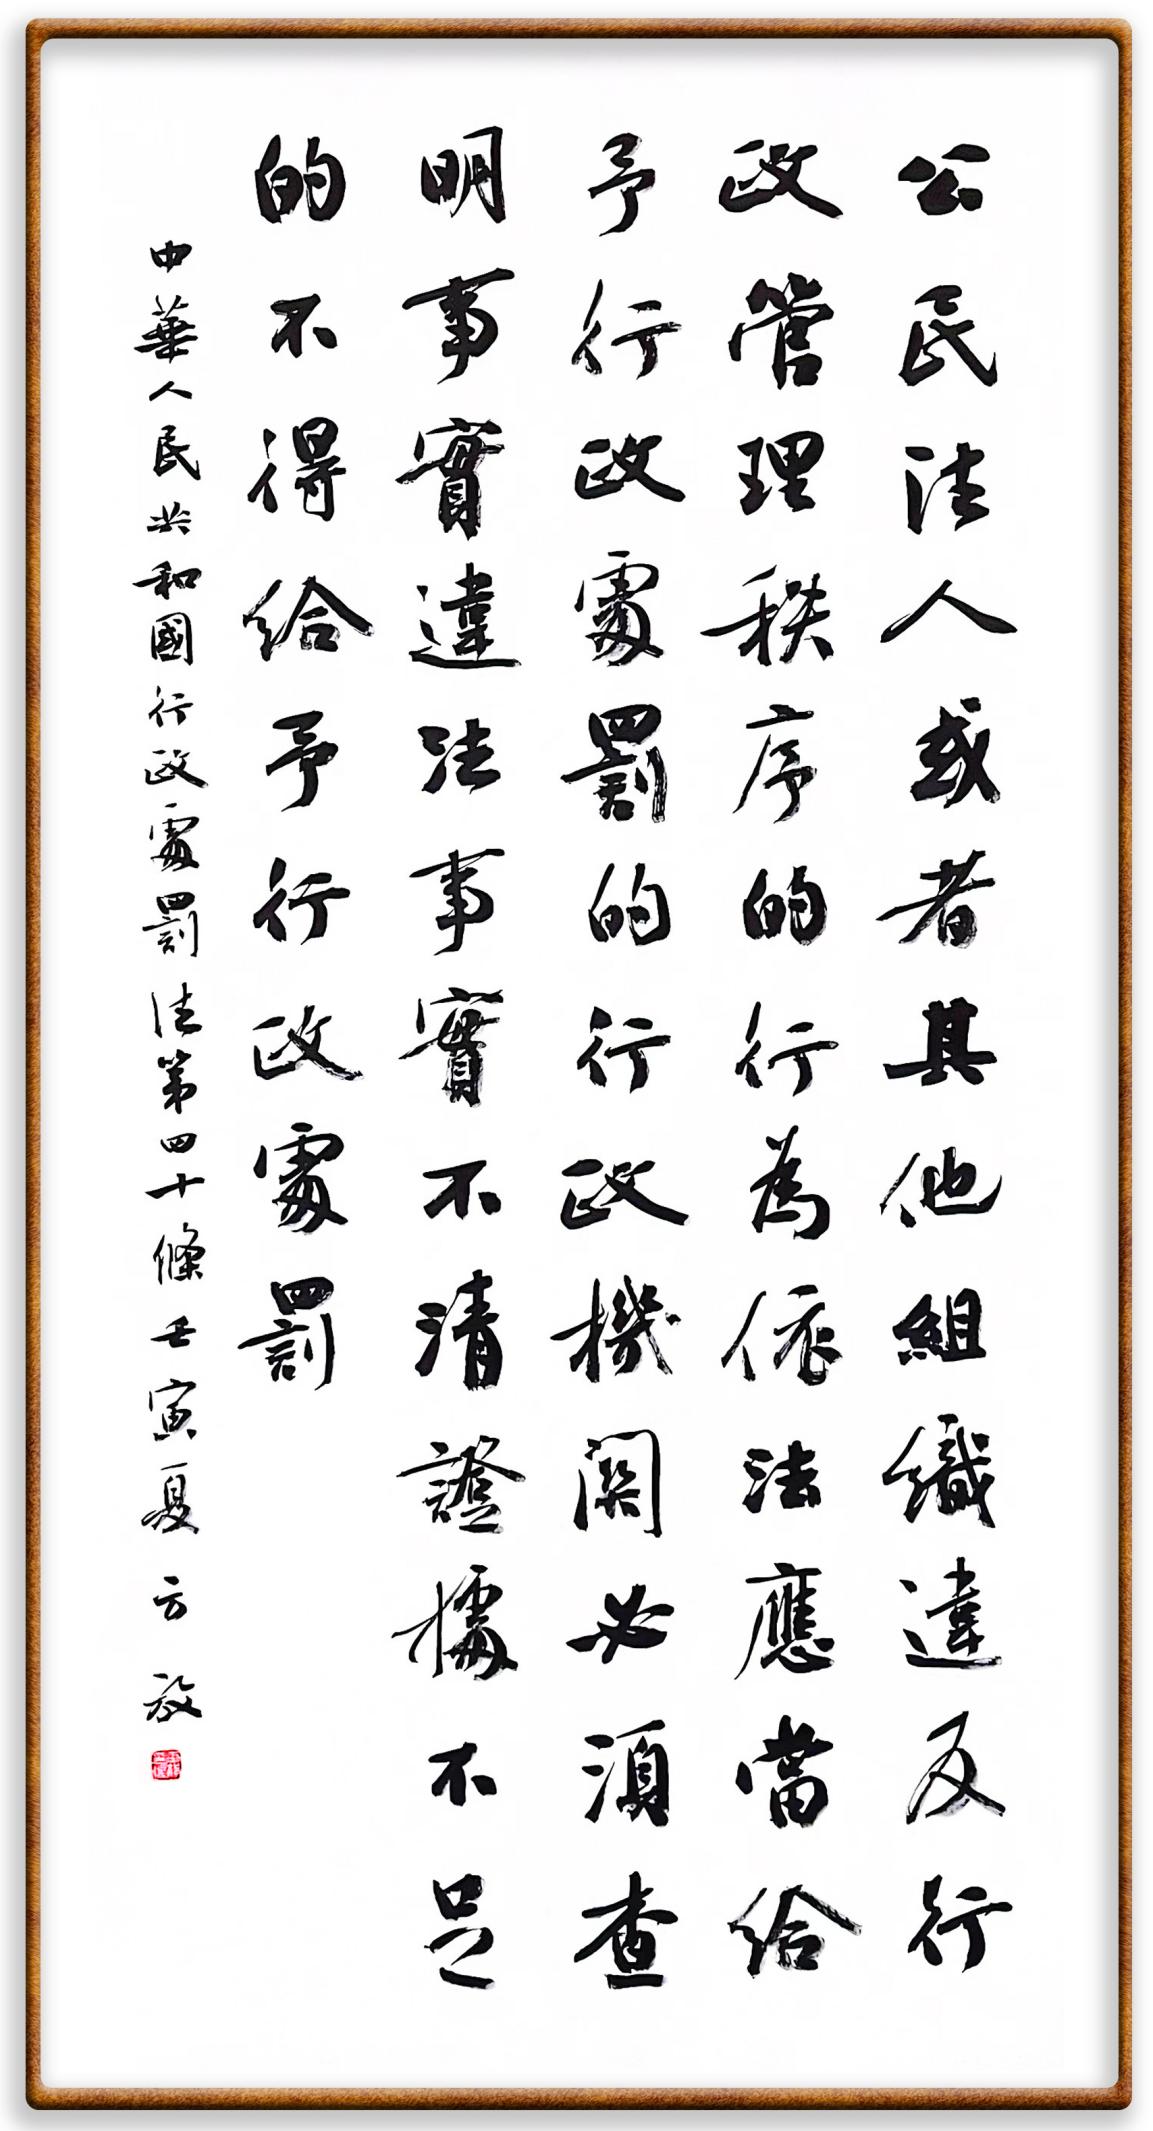 公民法人或者其他組織違反行
政管理秩序的行為依法應當給
予行政處罰的行政機關必須查
明事實違法事實不清證據不足
的不得給予行政處罰
中華人民共和國行政處罰法第四十條壬寅夏方放